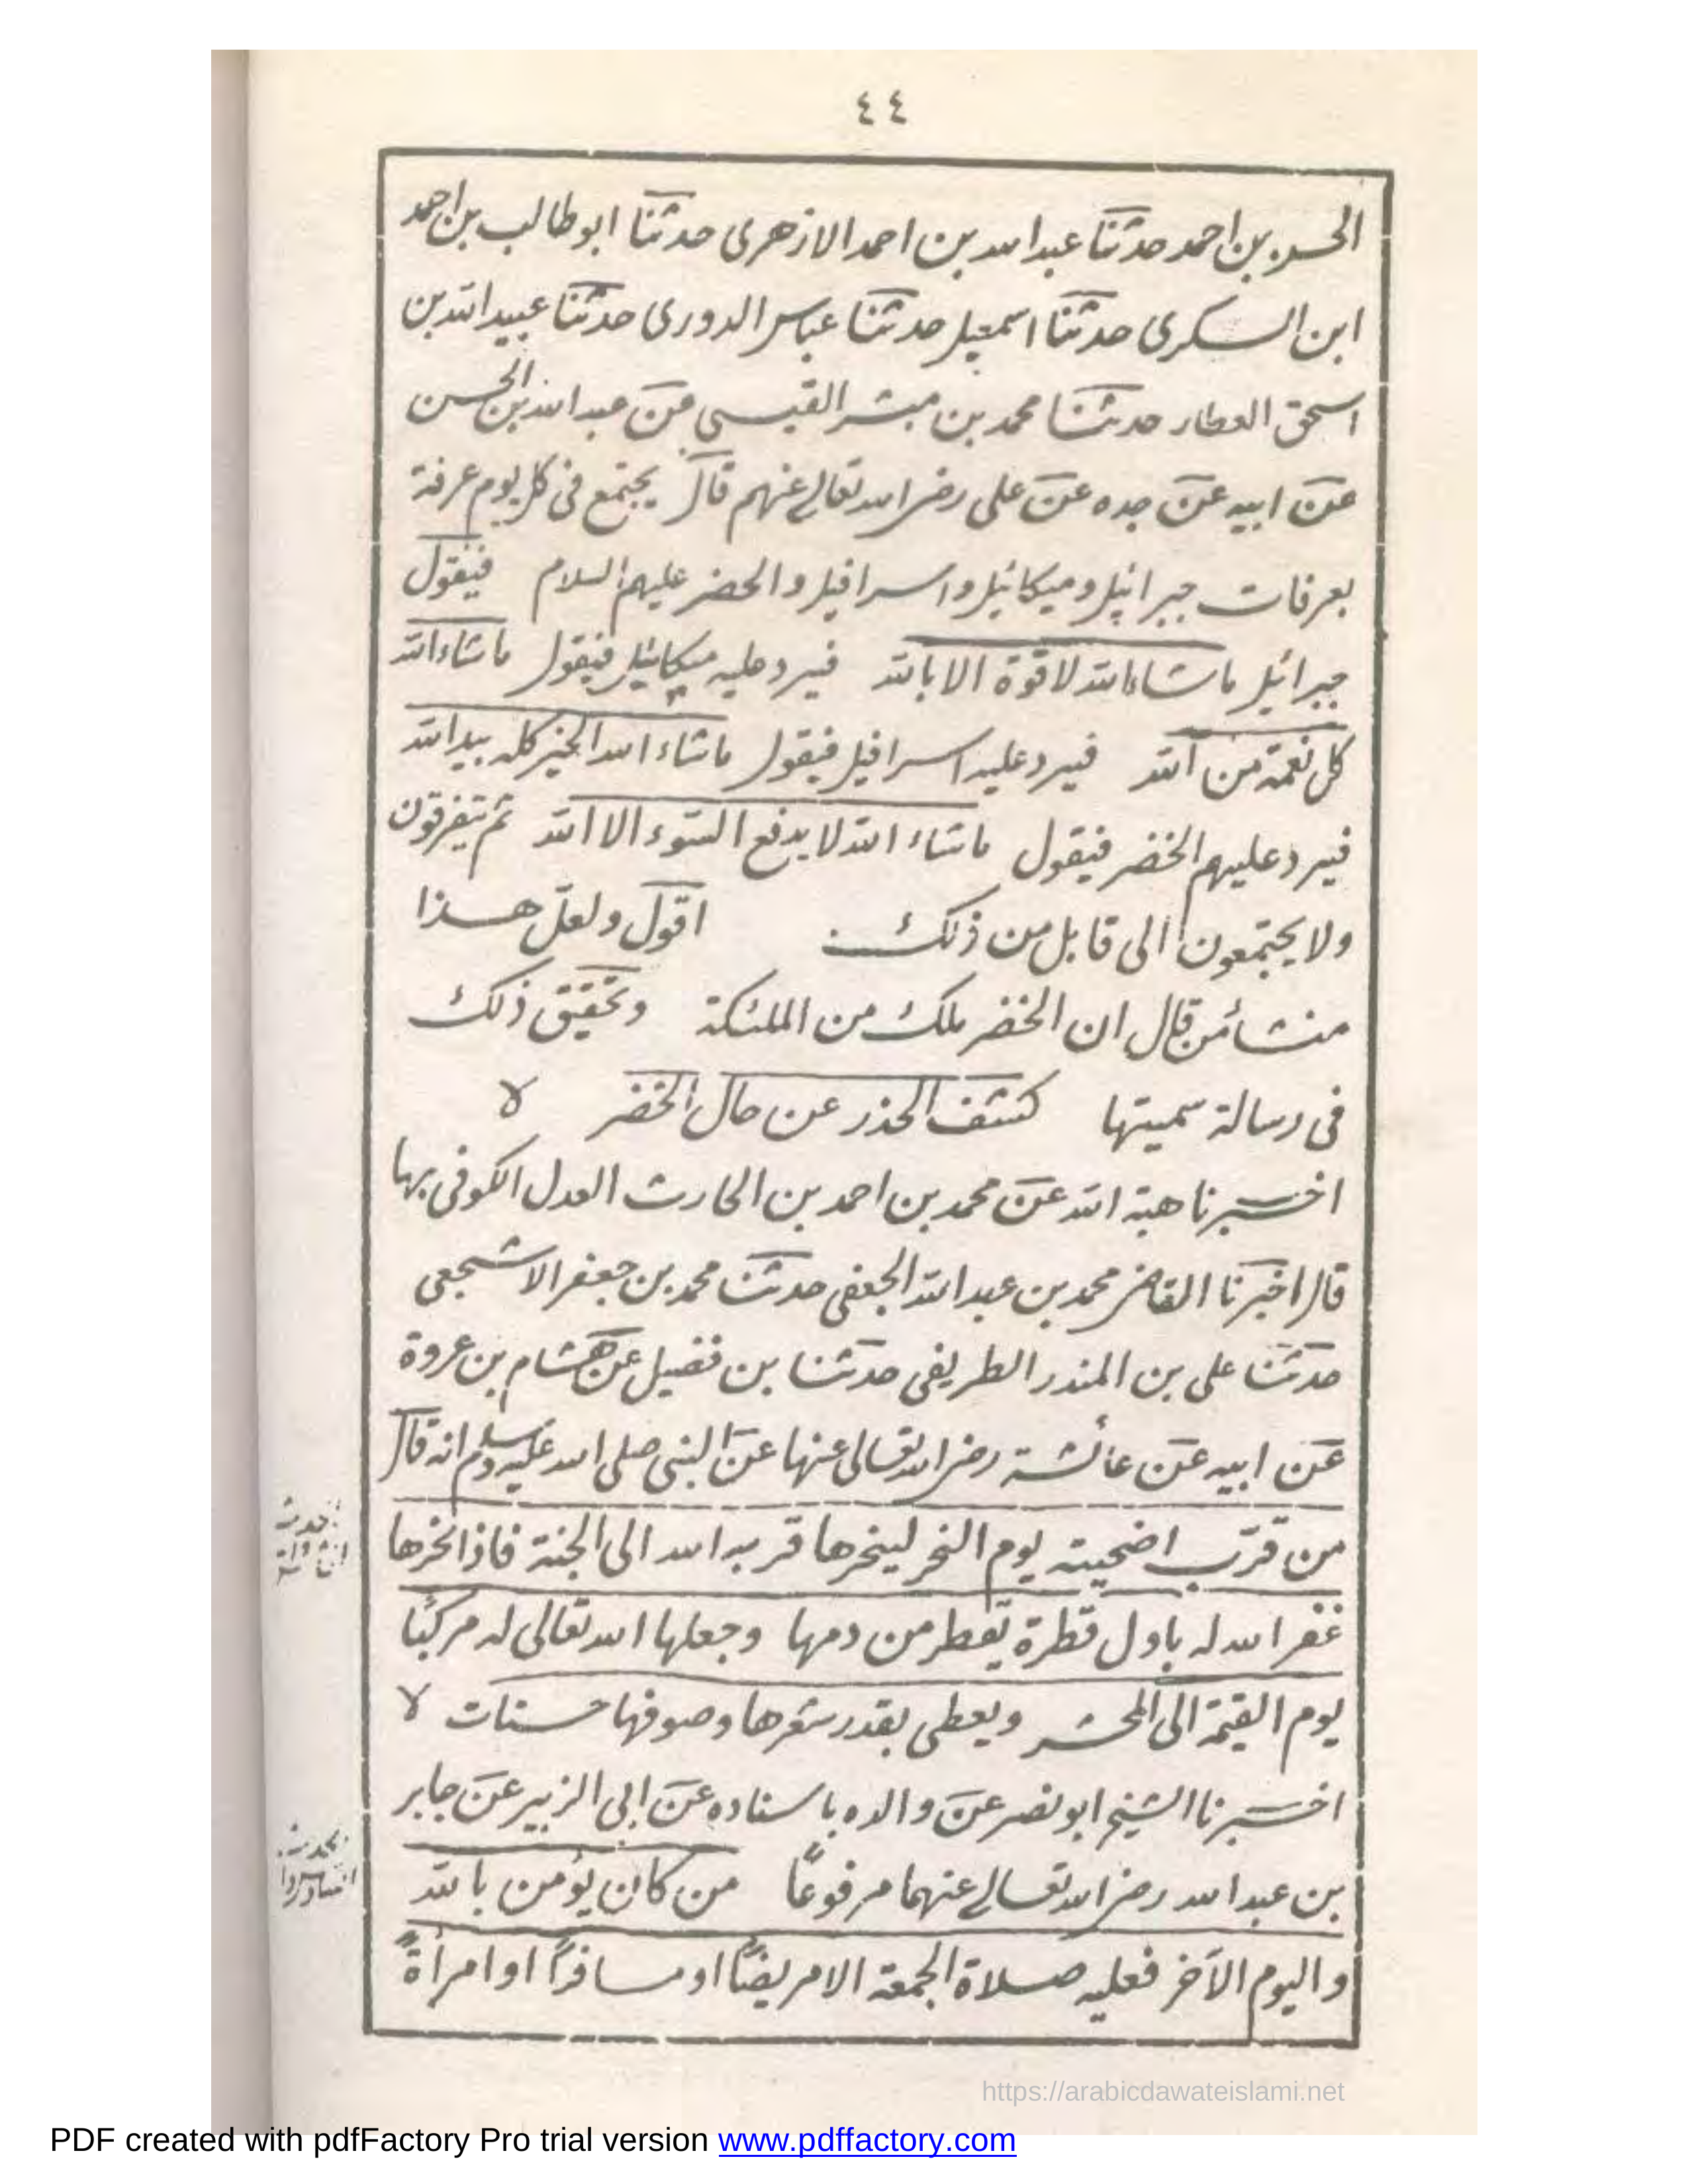 ٤٤
الحسن بن احمد حدثنا عبدالله بن احمد الازهرى حدثنا ابو طالب بن احمد
ابن السكرى حدثنا اسمعيل حدثنا عباس الدورى حدثنا عبيدالله بن
اسحق العطار حدثنا محمد بن مبشر القيسى عن عبدالله بن الحسن
عن ابيه عن جده عن على رضى الله تعالى عنهم قال يجتمع فى كل يوم عرفة
بعرفات جبرائيل وميكائيل واسرافيل والخضر عليهم السلام فيقول
جبرائيل ماشاءالله لا قوة الا بالله فيرد عليه ميكائيل فيقول ماشاءالله
كل نعمة من الله فيرد عليه اسرافيل فيقول ماشاء الله الخير كله بيد الله
فيرد عليهم الخضر فيقول ماشاء الله لا يدفع السّوء الا الله ثم يتفرقون
ولا يجتمعون الى قابل من ذلك اقول ولعلّ هذا
منشأ من قال ان الخضر ملك من الملئكة وتحقيق ذلك
فى رسالة سميتها كشف الحذر عن حال الخضر
اخبرنا هبة الله عن محمد بن احمد بن الحارث العدل الكوفى بها
قال اخبرنا القاضى محمد بن عبدالله الجعفى حدثنا محمد بن جعفر الاشجعى
حدثنا على بن المنذر الطريفى حدثنا بن فضيل عن هشام بن عروة
عن ابيه عن عائشة رضى الله تعالى عنها عن النبى صلى الله عليه وسلم انه قال
من قرّب اضحيته يوم النحر لينحرها قربه الله الى الجنة فاذا نحرها
غفر الله له باول قطرة يقطر من دمها وجعلها الله تعالى له مركبًا
يوم القيمة الى المحشر ويعطى بقدر شعرها وصوفها حسنات
اخبرنا الشيخ ابو نصر عن والده باسناده عن ابى الزبير عن جابر
بن عبدالله رضى الله تعالى عنهما مرفوعًا من كان يؤمن بالله
واليوم الآخر فعليه صلاة الجمعة الا مريضًا او مسافرًا او امرأةً
https://arabicdawateislami.net
PDF created with pdfFactory Pro trial version www.pdffactory.com